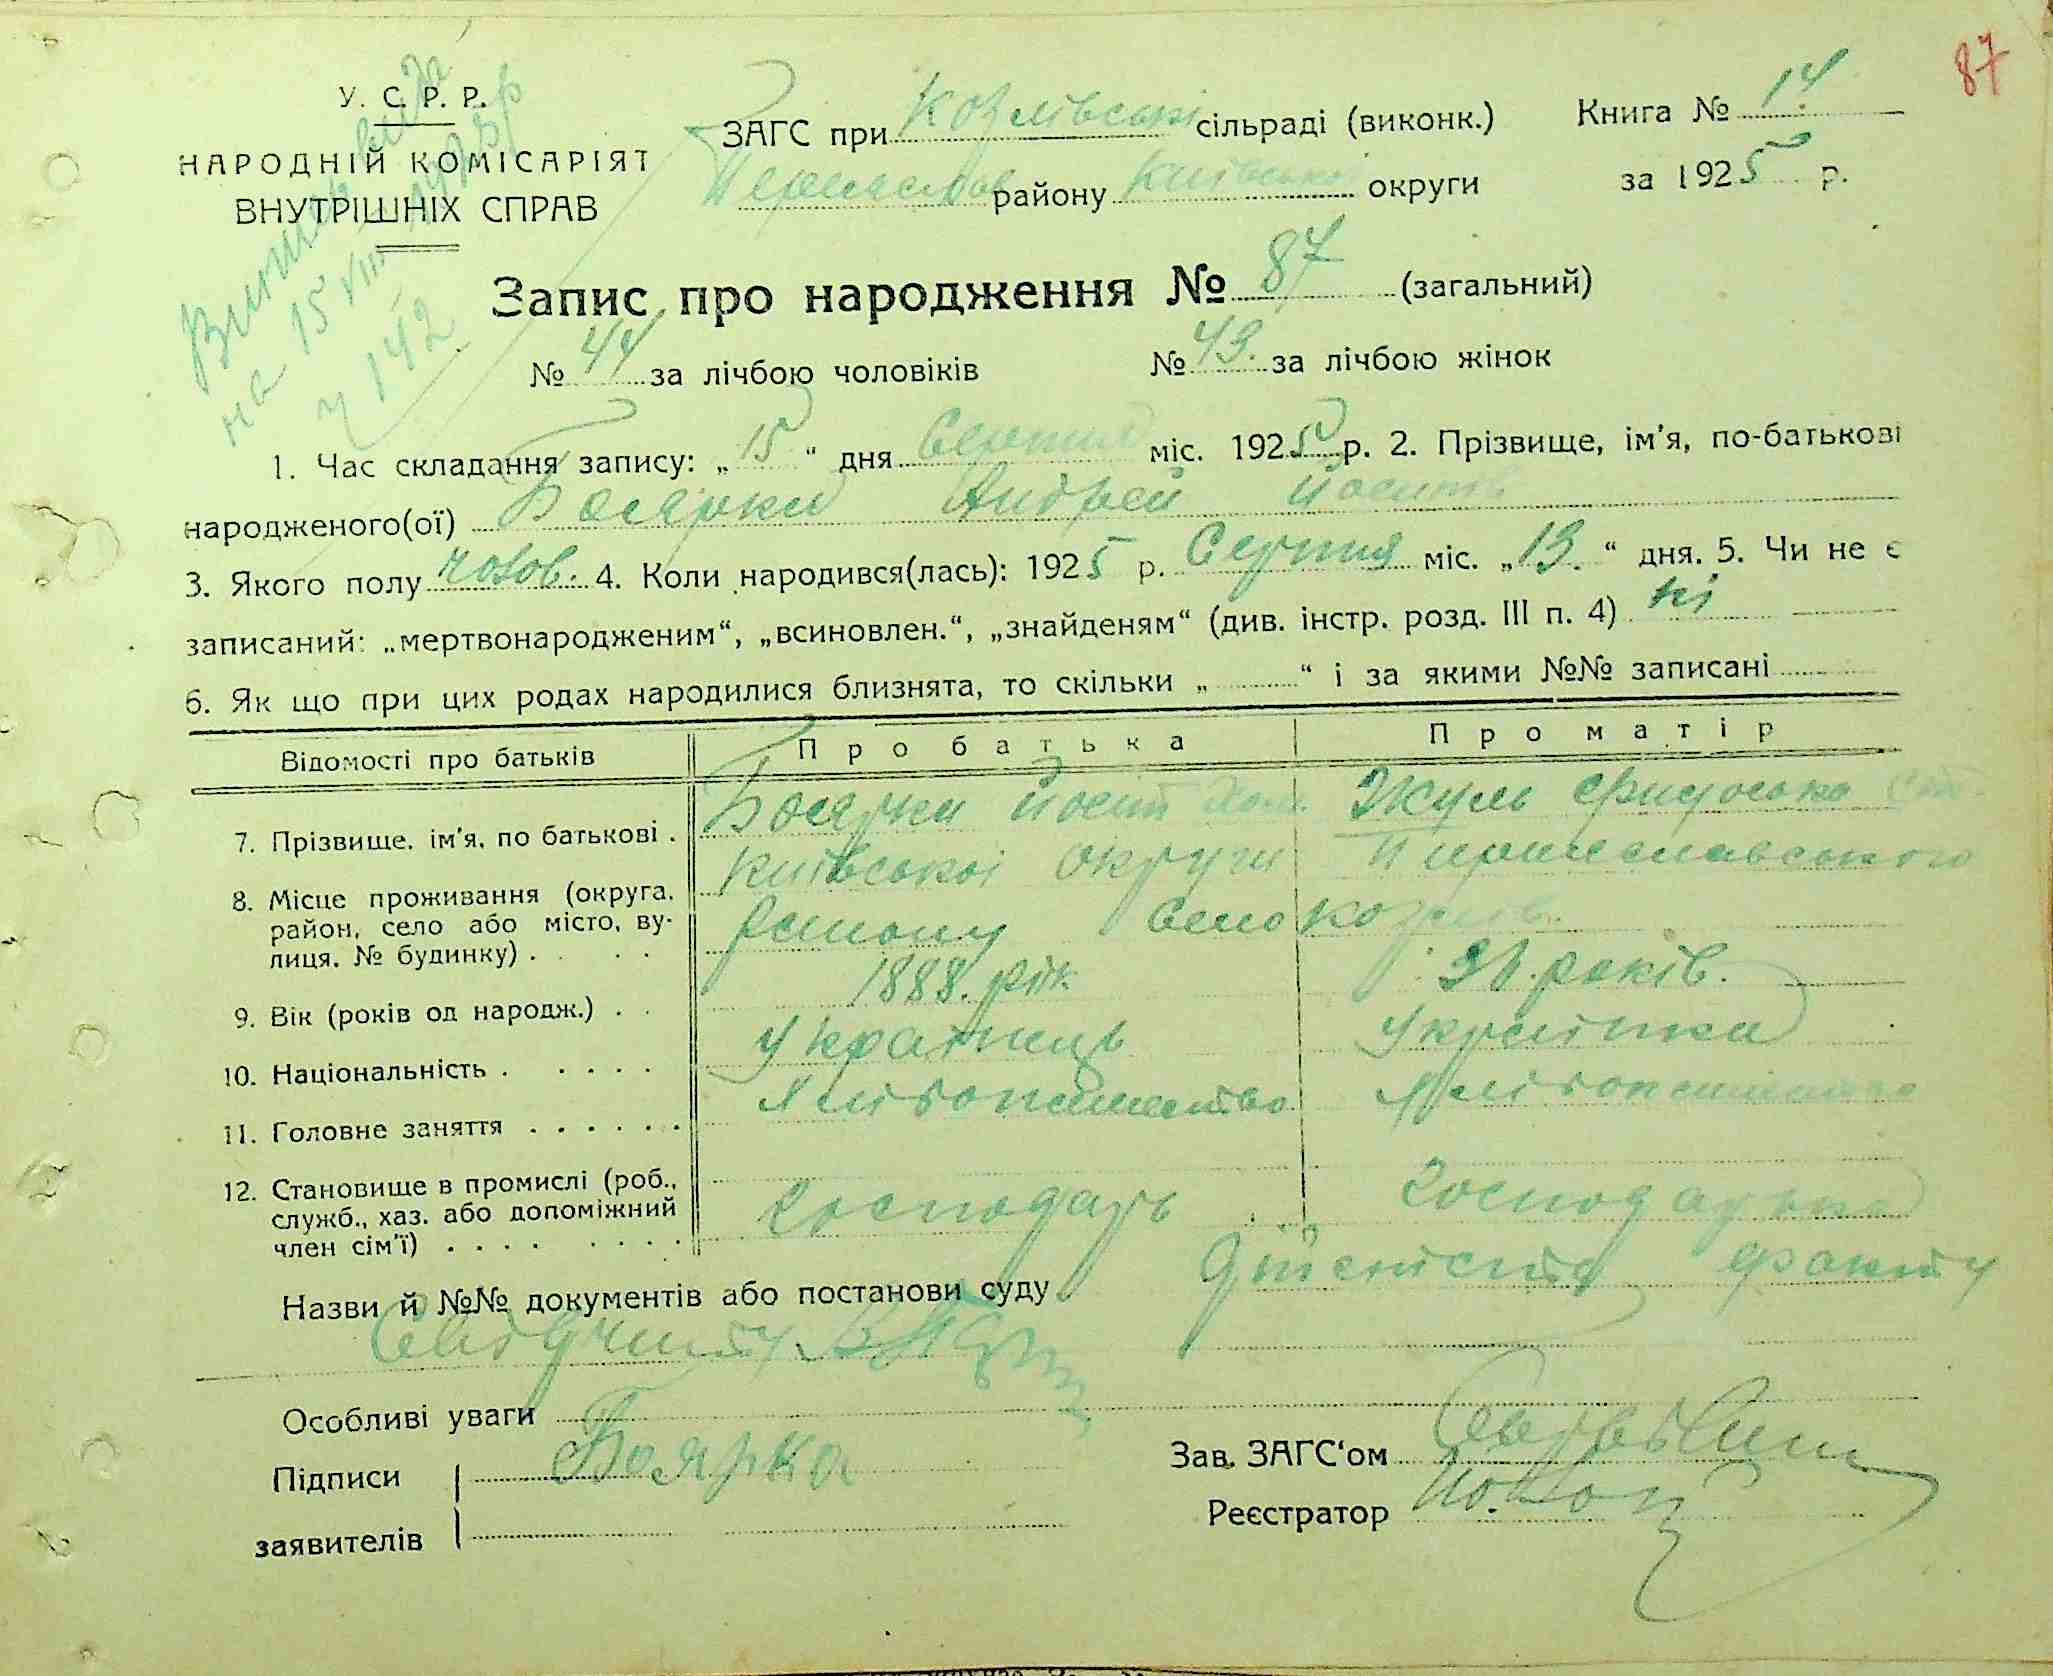 87
У. С. Р. Р.
НАРОДНІЙ КОМІСАРІЯТ
ВНУТРІШНІХ СПРАВ
на 15 VIII 1925 р
ч 142
ЗАГС при Козлівській сільраді (виконк.)
Переяслав району Київської округи
Книга № 14
за 1925 р.
Запис про народження № 87 (загальний)
№ 44 за лічбою чоловіків № 43. за лічбою жінок
1. Час складання запису: „ 15 “ дня Серпня міс. 1925 р. 2. Прізвище, ім'я, по-батькові
народженого(ої) Боярки Андрей Йосип
3. Якого полу чолов. 4. Коли народився(лась): 1925 р. Серпня міс. „ 13. “ дня. 5. Чи не є
записаний: „мертвонародженим“, „всиновлен.“, „знайденям“ (див. інстр. розд. III п. 4) ні
6. Як що при цих родах народилися близнята, то скільки „ “ і за якими №№ записані
Відомості про батьків Про батька Про матір
7. Прізвище, ім'я, по батькові . Боярки Йосип
8. Місце проживання (округа, район, село або місто, вулиця, № будинку) . Київської округи Переяславського
району село Козлів
9. Вік (років од народж.) . . 1888. рік. 31. років.
10. Національність . . . . . Українець Українка
11. Головне заняття . . . . . . Хліборобство
12. Становище в промислі (роб., служб., хаз. або допоміжний член сім'ї) . . . . Господарь Господарька
Назви й №№ документів або постанови суду факту
Особливі уваги
Підписи Боярка
заявителів
Зав. ЗАГС'ом
Реєстратор